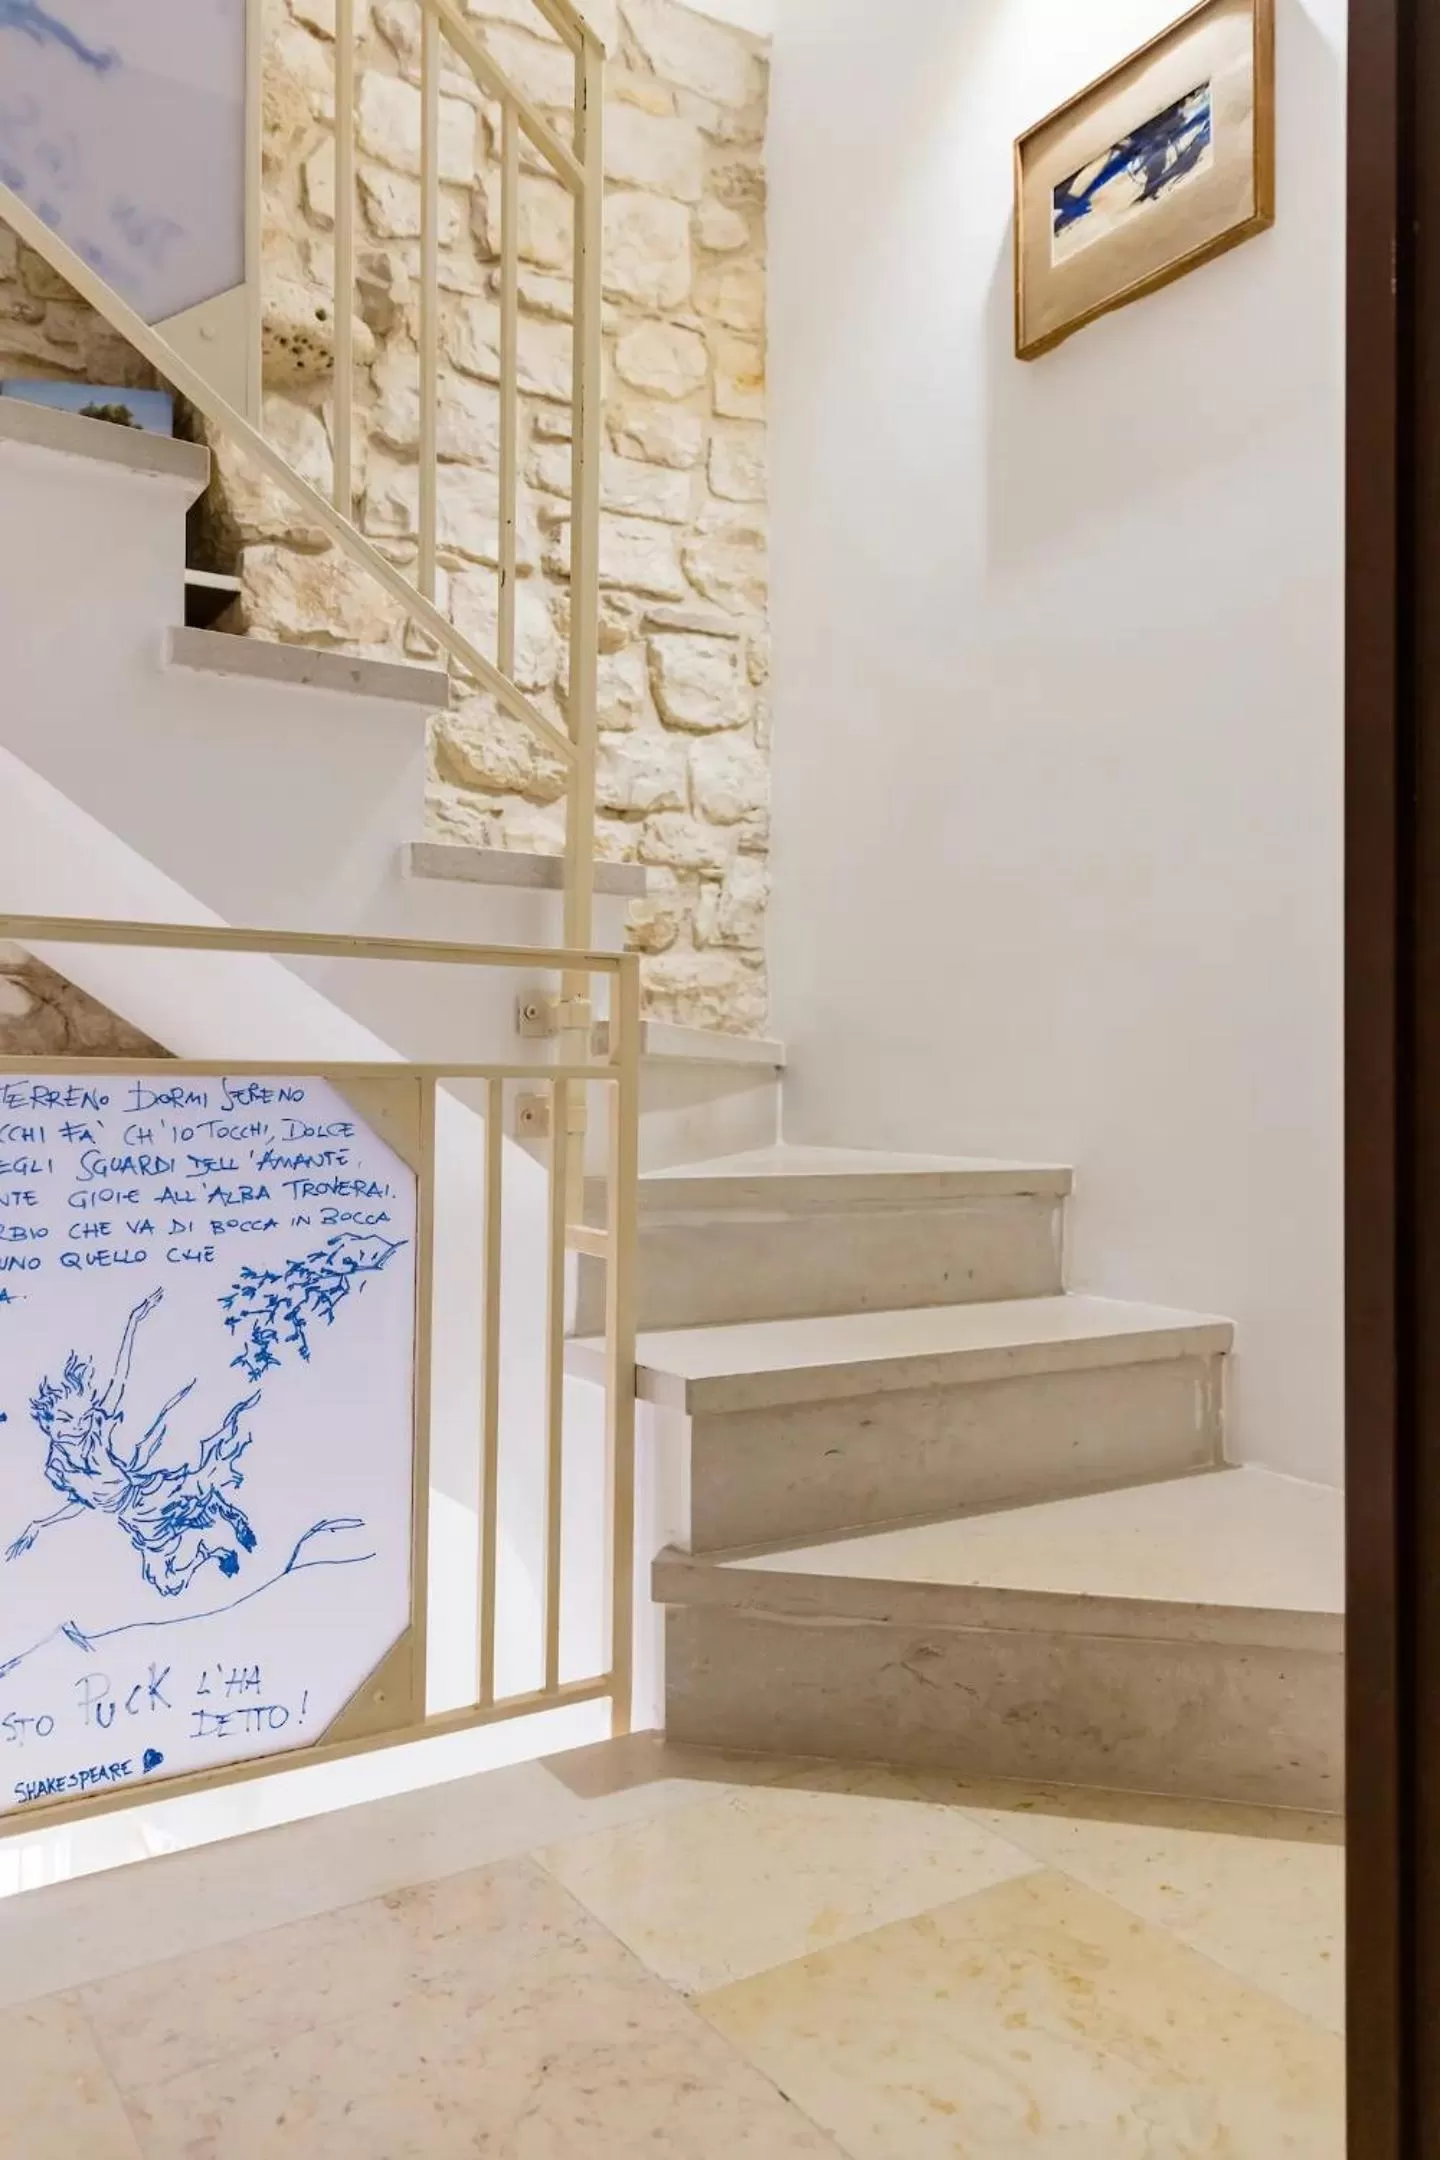 TERRENO DORMI SERENO
CCHI FA' CH'IO TOCCHI, DOLCE
EGLI SGUARDI DELL'AMANTE,
NTE GIOIE ALL'ALBA TROVERAI.
RBIO CHE VA DI BOCCA IN BOCCA
UNO QUELLO CHE
A.
STO PUCK L'HA
DETTO!
SHAKESPEARE